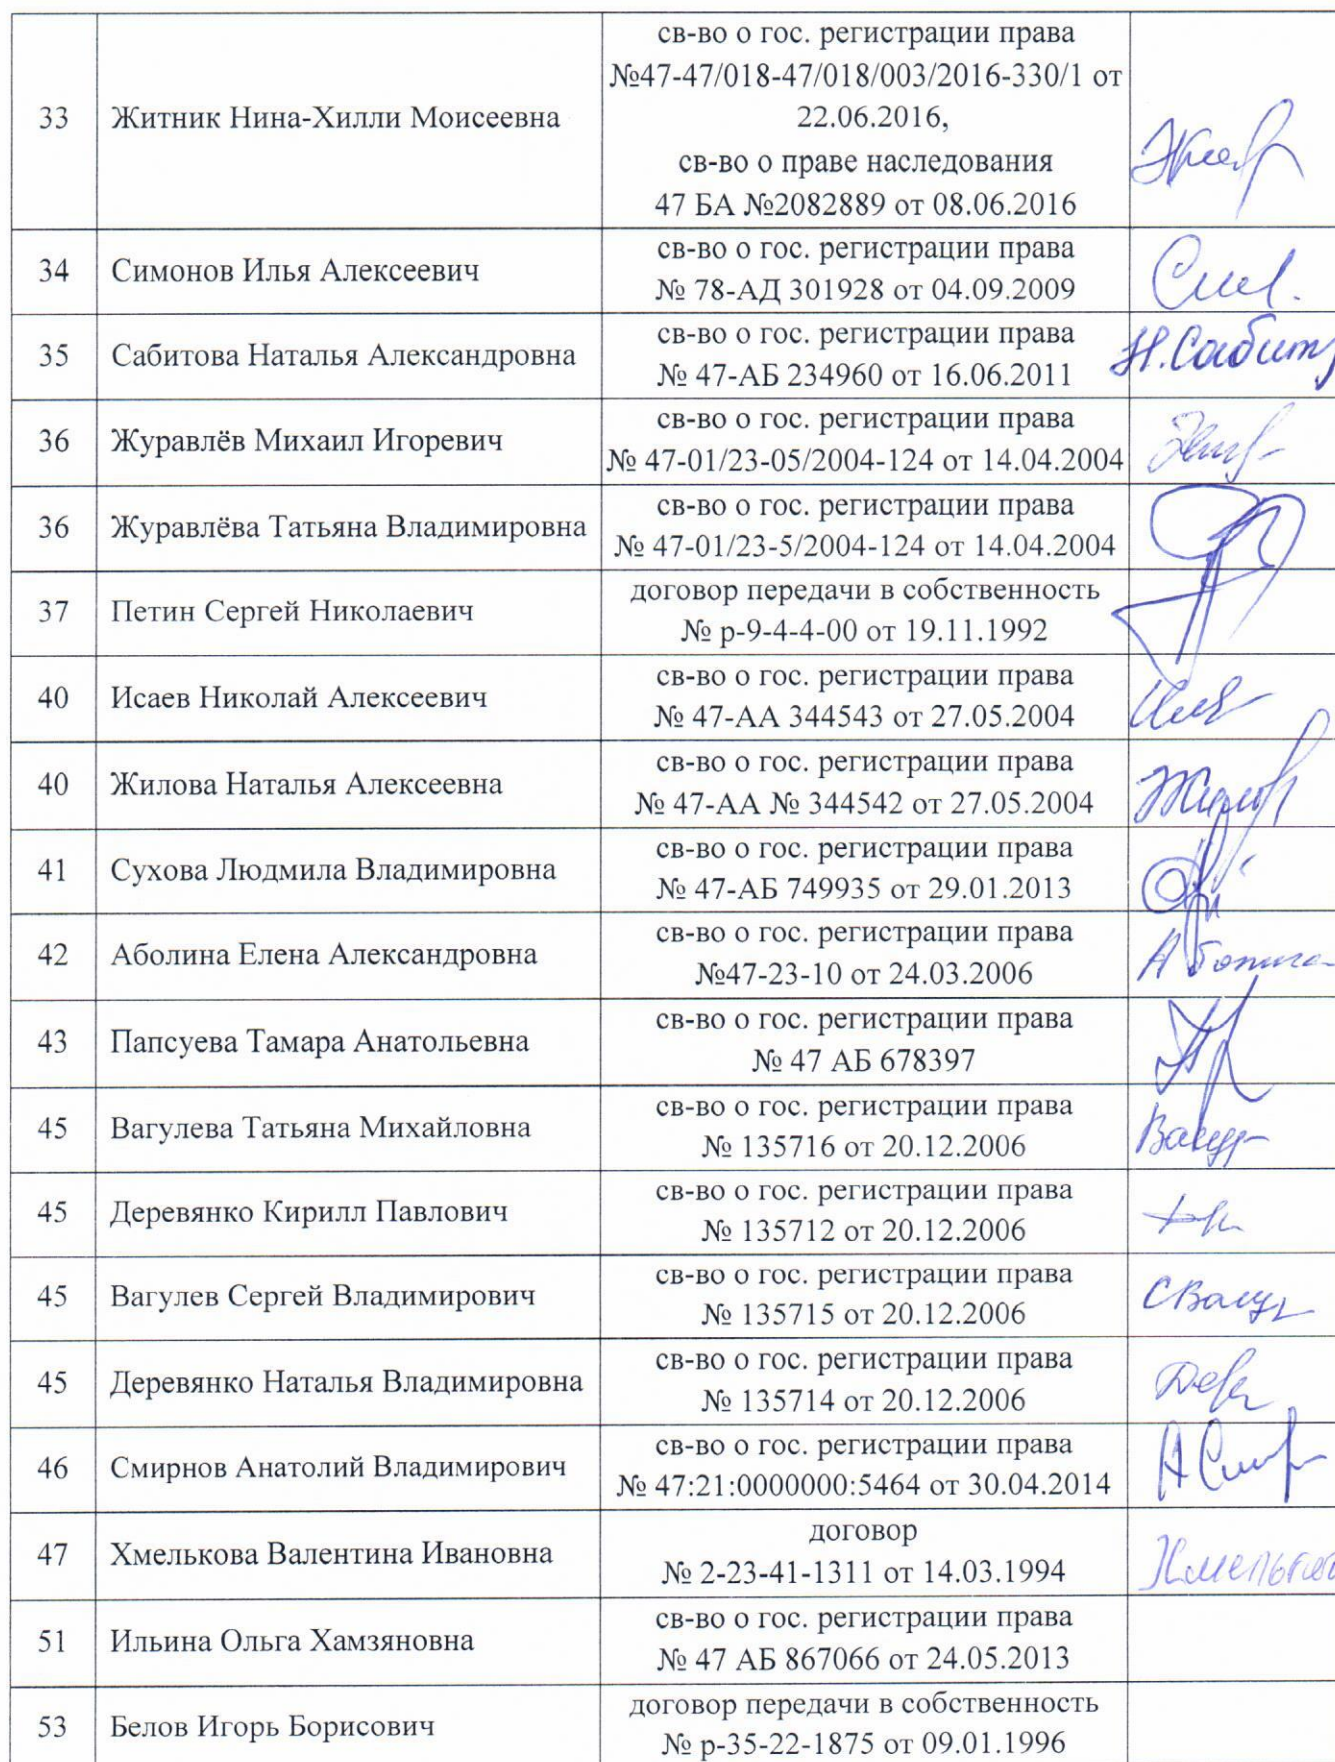 33
Житник Нина-Хилли Моисеевна
св-во о гос. регистрации права
№47-47/018-47/018/003/2016-330/1 от
22.06.2016,
св-во о праве наследования
47 БА №2082889 от 08.06.2016
34
Симонов Илья Алексеевич
св-во о гос. регистрации права
№ 78-АД 301928 от 04.09.2009
35
Сабитова Наталья Александровна
св-во о гос. регистрации права
№ 47-АБ 234960 от 16.06.2011
Н.Сабит
36
Журавлёв Михаил Игоревич
св-во о гос. регистрации права
№ 47-01/23-05/2004-124 от 14.04.2004
36
Журавлёва Татьяна Владимировна
св-во о гос. регистрации права
№ 47-01/23-5/2004-124 от 14.04.2004
37
Петин Сергей Николаевич
договор передачи в собственность
№ р-9-4-4-00 от 19.11.1992
40
Исаев Николай Алексеевич
св-во о гос. регистрации права
№ 47-АА 344543 от 27.05.2004
40
Жилова Наталья Алексеевна
св-во о гос. регистрации права
№ 47-АА № 344542 от 27.05.2004
41
Сухова Людмила Владимировна
св-во о гос. регистрации права
№ 47-АБ 749935 от 29.01.2013
42
Аболина Елена Александровна
св-во о гос. регистрации права
№47-23-10 от 24.03.2006
43
Папсуева Тамара Анатольевна
св-во о гос. регистрации права
№ 47 АБ 678397
45
Вагулева Татьяна Михайловна
св-во о гос. регистрации права
№ 135716 от 20.12.2006
45
Деревянко Кирилл Павлович
св-во о гос. регистрации права
№ 135712 от 20.12.2006
45
Вагулев Сергей Владимирович
св-во о гос. регистрации права
№ 135715 от 20.12.2006
45
Деревянко Наталья Владимировна
св-во о гос. регистрации права
№ 135714 от 20.12.2006
46
Смирнов Анатолий Владимирович
св-во о гос. регистрации права
№ 47:21:0000000:5464 от 30.04.2014
47
Хмелькова Валентина Ивановна
договор
№ 2-23-41-1311 от 14.03.1994
51
Ильина Ольга Хамзяновна
св-во о гос. регистрации права
№ 47 АБ 867066 от 24.05.2013
53
Белов Игорь Борисович
договор передачи в собственность
№ р-35-22-1875 от 09.01.1996